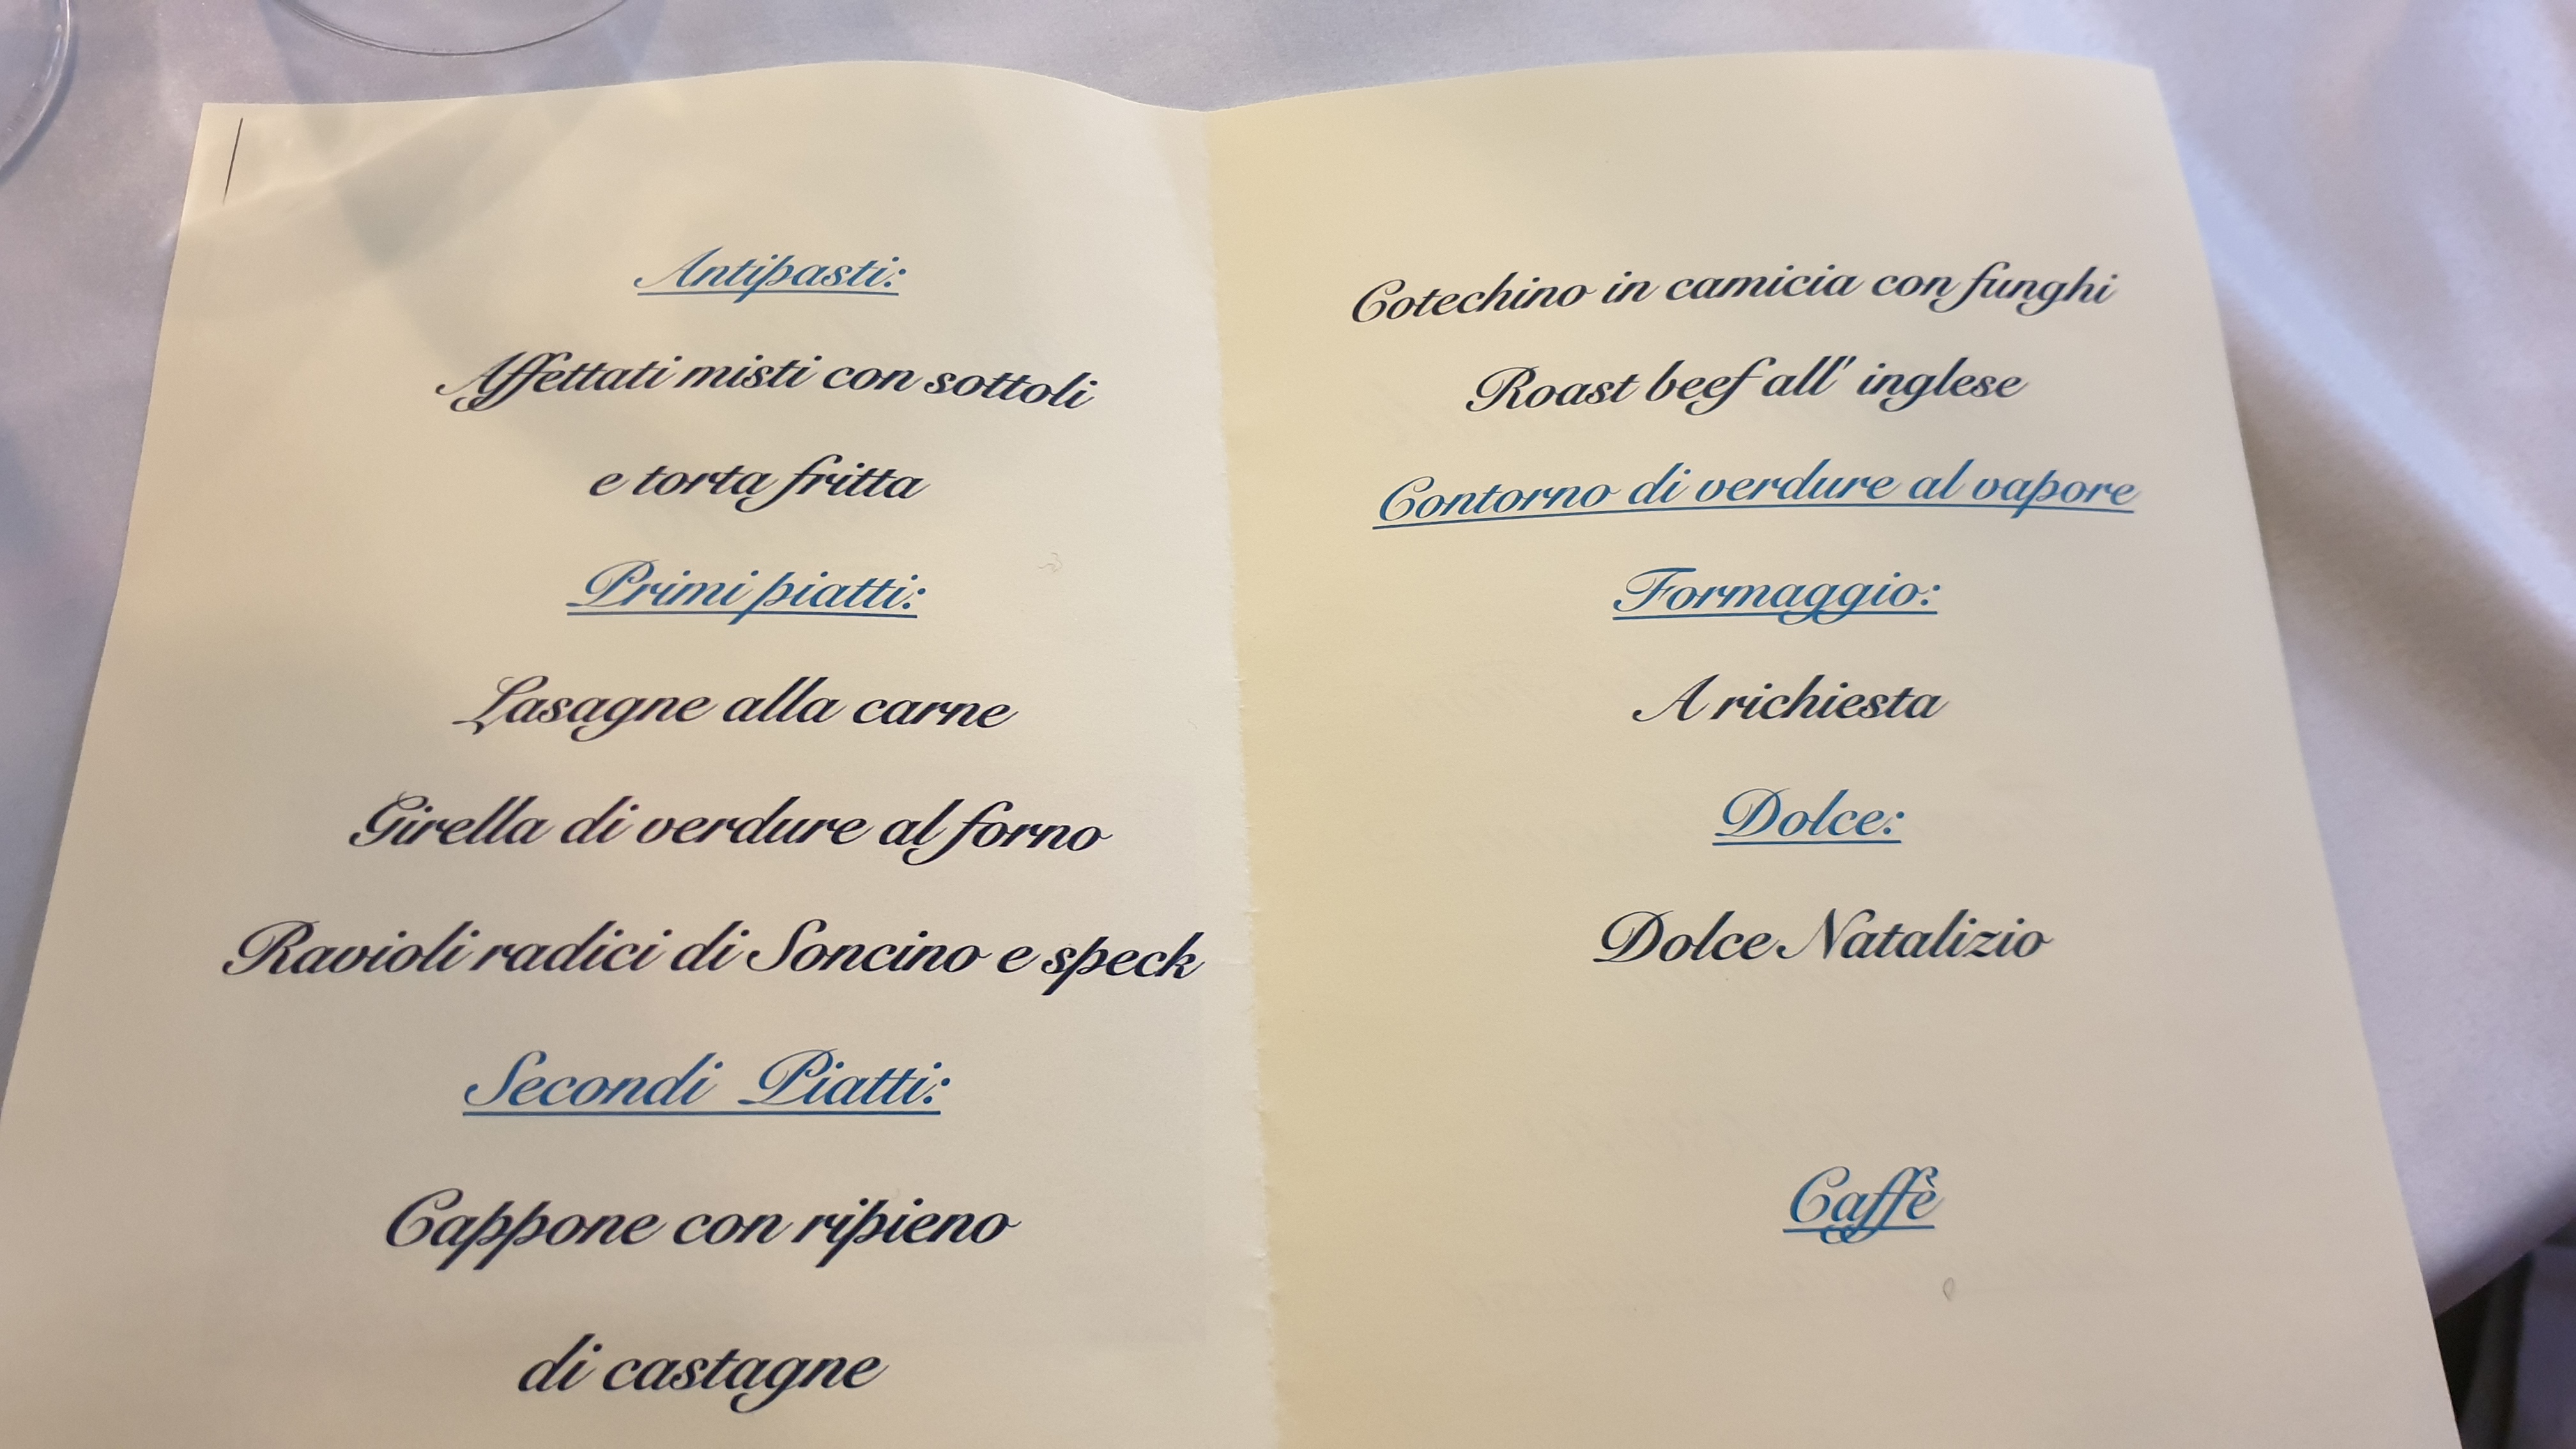 Antipasti:
Affettati misti con sottoli
e torta fritta
Primi piatti:
Lasagne alla carne
Girella di verdure al forno
Ravioli radici di Soncino e speck
Secondi Piatti:
Cappone con ripieno
di castagne
Cotechino in camicia con funghi
Roast beef all' inglese
Contorno di verdure al vapore
Formaggio:
A richiesta
Dolce:
Dolce Natalizio
Caffè